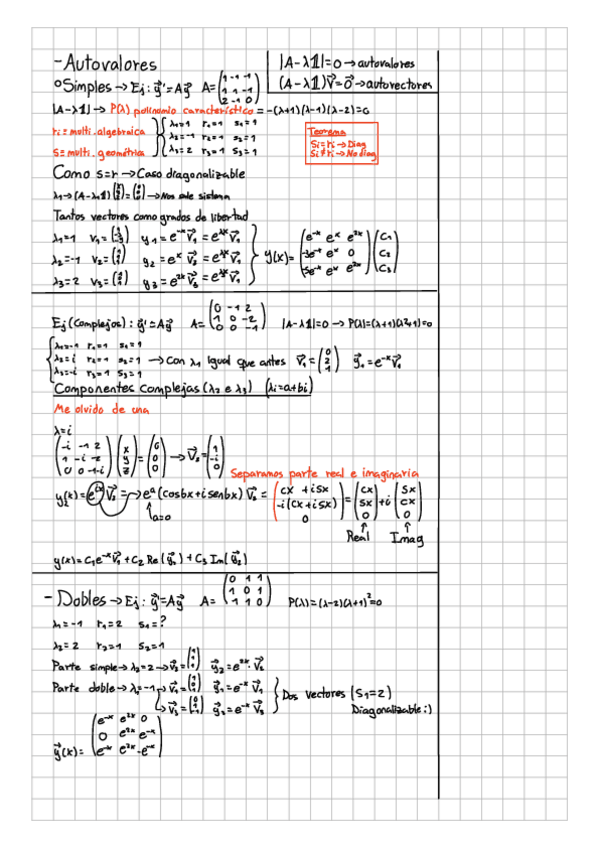 - Autovalores
|A-λ𝟙|=0 → autovalores
(A-λ𝟙)V⃗=0⃗ → autovectores
Simples → Ej: y⃗'=Ay⃗ A=
|A-λ𝟙| → P(λ) polinomio característico = -(λ+1)(λ-1)(λ-2)=0
ri ≡ multi. algebraica
S ≡ multi. geométrica
λ₁=1 r₁=1 s₁=1
λ₂=-1 r₂=1 s₂=1
λ₃=2 r₃=1 s₃=1
Teorema
Si=ri → Diag
Si≠ri → No diag
Como s=r → Caso diagonalizable
Tantos vectores como grados de libertad
λ₁=1 V₁=
λ₂=-1 V₂=
λ₃=2 V₃=
y(x)=
Ej (complejos): y⃗'=Ay⃗ A= (0 -1 2; 1 0 -2; 0 0 -1) |A-λ𝟙|=0 → P(λ)=(λ+1)(λ²+1)=0
λ₁=-1 r₁=1 s₁=1
λ₂=i r₂=1 s₂=1 → Con λ₁ igual que antes V⃗₁=(0 2 1) y⃗₁=e⁻ˣV⃗₁
λ₃=-i r₃=1 s₃=1
Componentes complejas (λ₂ e λ₃) (λi=a+bi)
Me olvido de una
λ=i
Separamos parte real e imaginaria
eᵃ(cosbx+isenbx) V⃗₂ = (cx+isx; -i(cx+isx); 0) = (cx; sx; 0) + i (sx; cx; 0)
a=0
Real Imag
y(x)=C₁e⁻ˣV⃗₁+C₂ Re(y⃗₂)+C₃ Im(y⃗₂)
- Dobles → Ej: y⃗'=Ay⃗ A= (0 1 1; 1 0 1; 1 1 0) P(λ)=(λ-2)(λ+1)²=0
λ₁=-1 r₁=2 s₁=?
λ₂=2 r₂=1 s₂=1
Parte simple → λ₂=2 → V⃗₂=(1 1 1) y⃗₂=e²ˣ·V⃗₂
Parte doble → λ₁=-1 → V⃗₁= y⃗₁=e⁻ˣV⃗₁
V⃗₃= y⃗₃=e⁻ˣV⃗₃
Dos vectores (S₁=2)
Diagonalizable :)
y⃗(x)= (e⁻ˣ e²ˣ 0; 0 e²ˣ e⁻ˣ; -e⁻ˣ e²ˣ -e⁻ˣ)